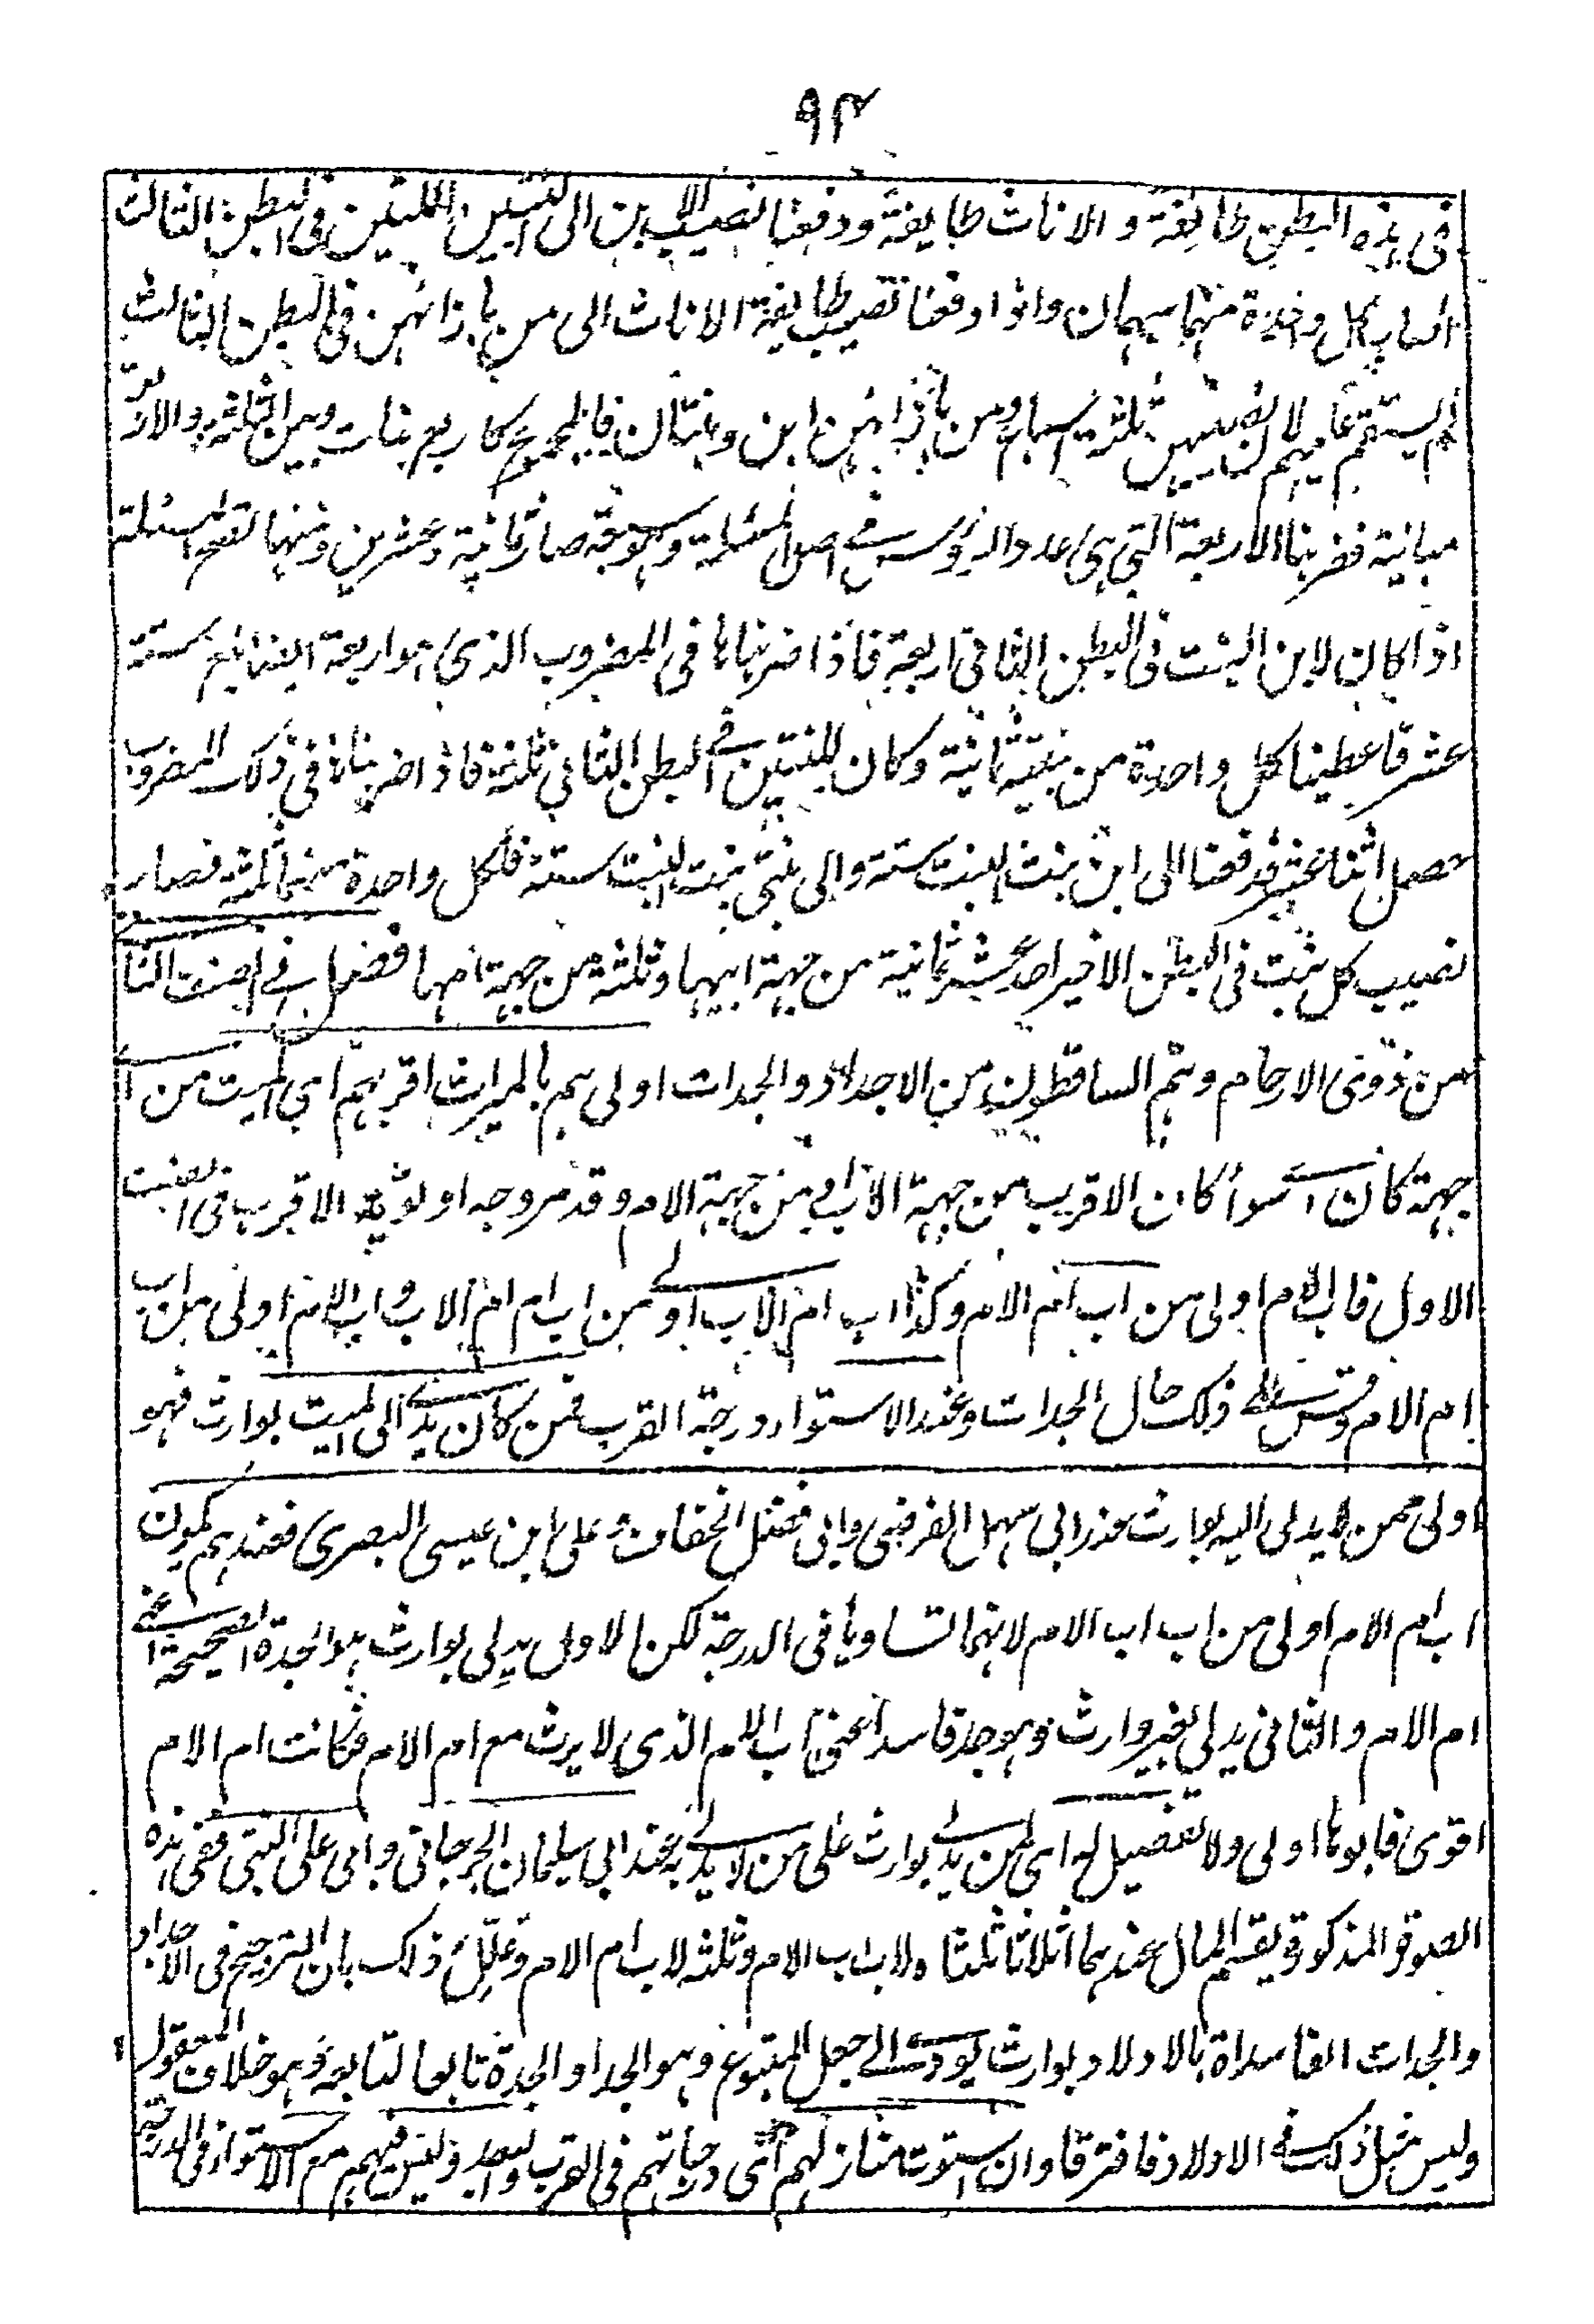 ٩٣
فى هذه البطون طايفة و الاناث طايفة و دفعنا نصيب الابن الى البنتين اللتين فى البطن الثالث
اصاب كل واحدة منهما سهمان واذا دفعنا نصيب طايفة الاناث الى من بازائهن فى البطن الثالث
لم يستقم عليهم لان نصيبهن ثلثة سهام ومن بازائهن ابن وبنتان فالمجموع كاربع بنات وبين الثلثة والاربعة
مباينة فضربنا الاربعة التى هى عدد الرؤس فى اصل المسئلة وهو سبعة صار ثمانية وعشرين ومنها تصح المسئلة
اذ كان لابن البنت فى البطن الثانى اربعة فاذا ضربناها فى المضروب الذى هو اربعة ايضا بلغ ستة
عشر فاعطينا كل واحدة من بنتيه ثمانية وكان للبنتين فى البطن الثانى ثلثة فاذا ضربناها فى ذلك المضروب
حصل اثنا عشر فدفعنا الى ابن بنت البنت ستة والى بنتى بنت البنت ستة فلكل واحدة منهما ثلثة فصار
نصيب كل بنت فى البطن الاخير احد عشر ثمانية من جهة ابيها وثلثة من جهة امها فصل فى الصنف الثا
من ذوى الارحام وهم الساقطون من الاجداد والجدات اولى هم بالميراث اقربهم اى الميت من اى
جهة كان اى سواء كان الاقرب من جهة الاب او من جهة الام وقد مر وجه اولوية الاقرب فى الصنف
الاول فاب الام اولى من اب ام الام وكذا اب ام الاب اولى من اب ام ام الاب و اب الام اولى من اب
ام الام وقس على ذلك حال الجدات وعند الاستواء درجة القرب فمن كان يدلى الى الميت بوارث فهو
اولى ممن لا يدلى اليه بوارث عند ابى سهل الفرضى وابى فضل الخفاف وعلى ابن عيسى البصرى فعندهم يكون
اب ام الام اولى من اب اب الام لانهما تساويا فى الدرجة لكن الاول يدلى بوارث هو الجدة الصحيحة اعنى
ام الام و الثانى يدلى بغير وارث وهو جد فاسد اعنى اب الام الذى لا يرث مع ام الام فكانت ام الام
اقوى فابوها اولى ولا تفضيل له اى لمن يدلى بوارث على من لا يدلى به عند ابى سليمان الجرجانى وابى على البستى ففى هذه
الصورة المذكورة يقسم المال عندهما اثلاثا ثلثاه لاب اب الام وثلثه لاب ام الام وعلل ذلك بان الترجيح فى الاجداد
والجدات الفاسداة بالاولاد بوارث يؤدى الى جعل المتبوع وهو الجد او الجدة تابعا لتابعه وهو خلاف المعقول
وليس مثل ذلك فى الاولاد فافترقا وان استوت منازلهم اى درجاتهم فى القرب والبعد وليس فيهم مع الاستواء فى الدرجة